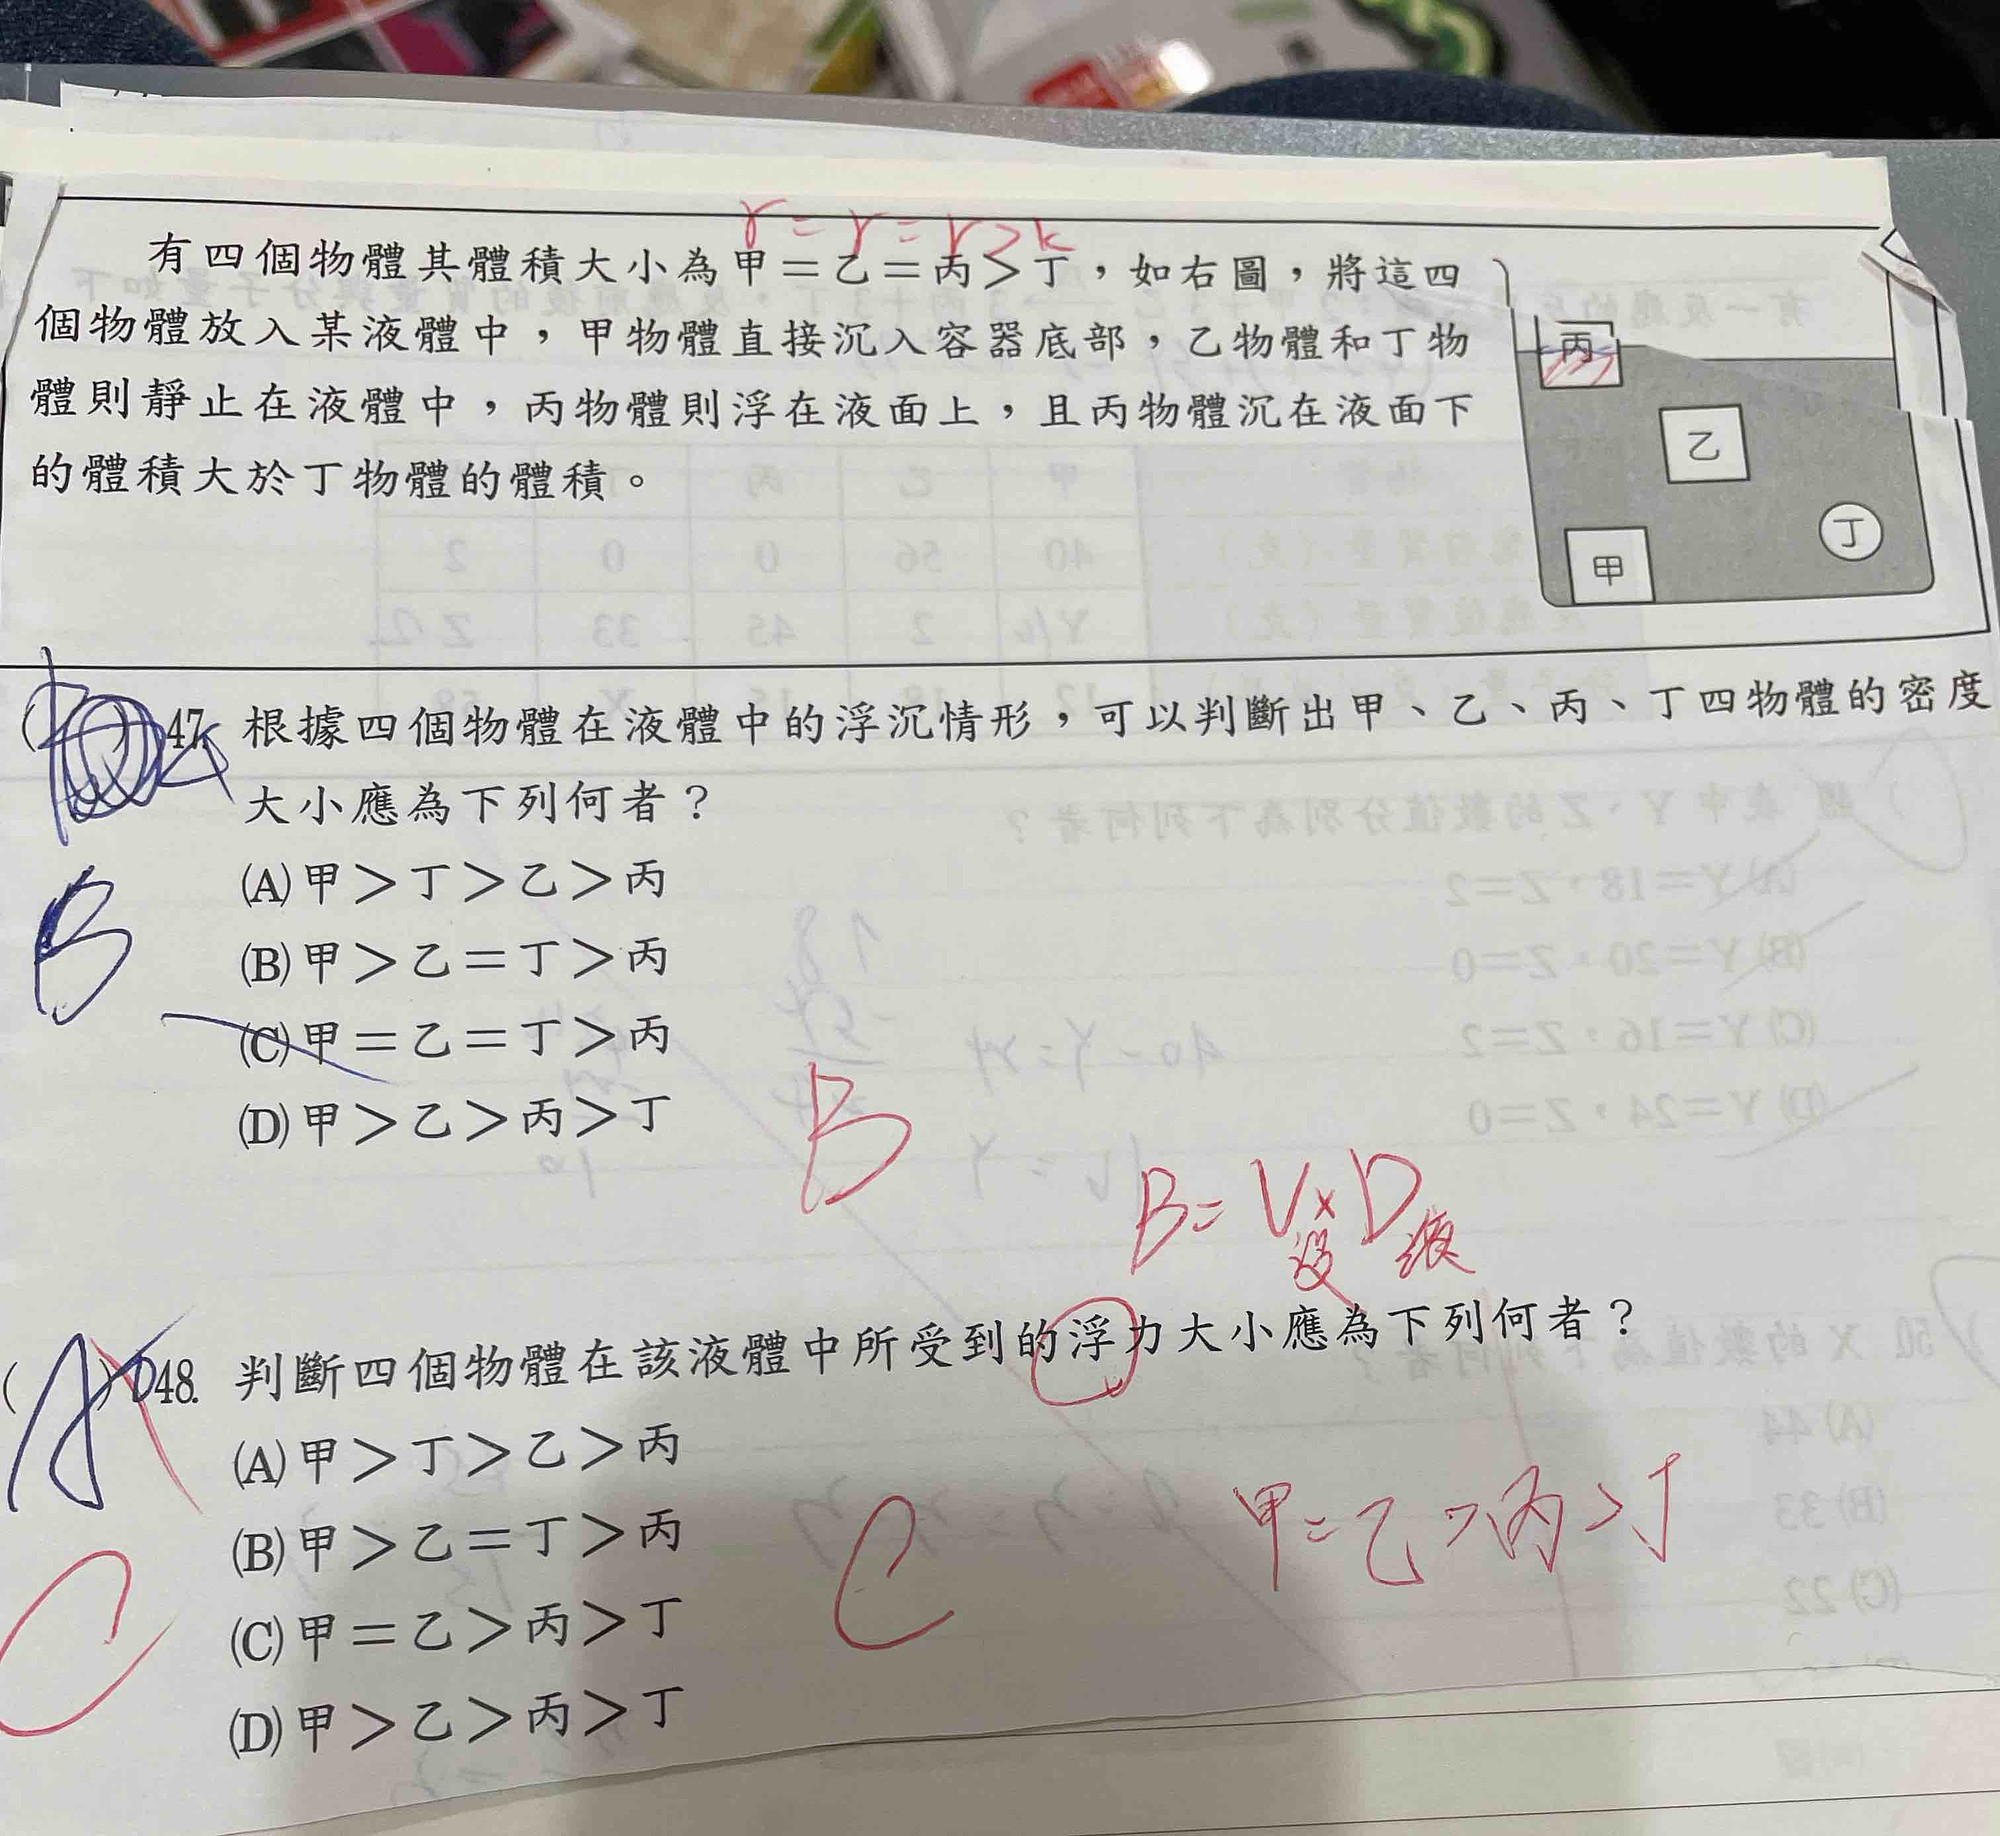 有四個物體其體積大小為甲＝乙＝丙＞丁，如右圖，將這四
個物體放入某液體中，甲物體直接沉入容器底部，乙物體和丁物
體則靜止在液體中，丙物體則浮在液面上，且丙物體沉在液面下
的體積大於丁物體的體積。
丙
乙
丁
甲
47. 根據四個物體在液體中的浮沉情形，可以判斷出甲、乙、丙、丁四物體的密度
大小應為下列何者？
(A)甲＞丁＞乙＞丙
B
(B)甲＞乙＝丁＞丙
(C)甲＝乙＝丁＞丙
(D)甲＞乙＞丙＞丁
B
B=V沒×D液
( A )48. 判斷四個物體在該液體中所受到的浮力大小應為下列何者？
(A)甲＞丁＞乙＞丙
(B)甲＞乙＝丁＞丙
甲=乙>丙>丁
C
C
(C)甲＝乙＞丙＞丁
(D)甲＞乙＞丙＞丁